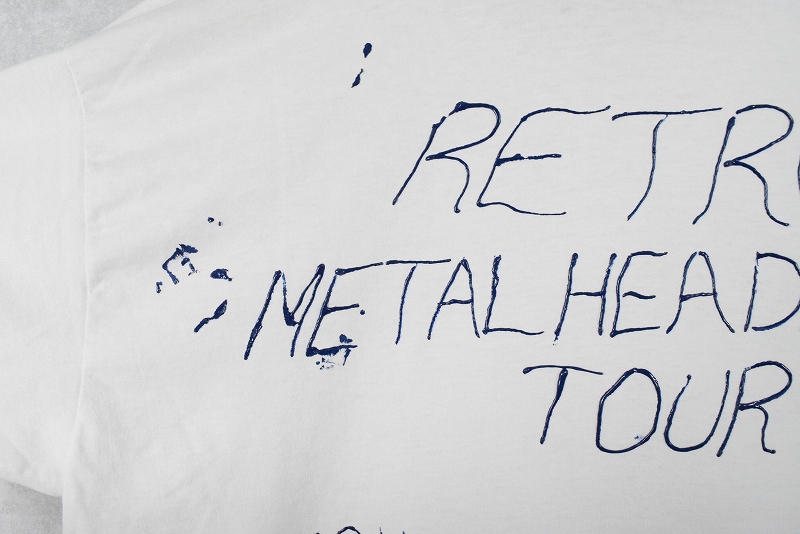 RETR
METALHEAD
TOUR